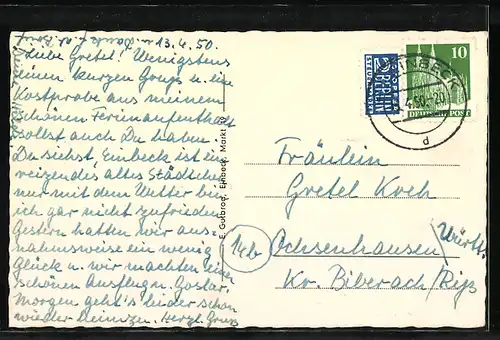 13.4.50.
Liebe Gretel! Wenigstens
einen kurzen Gruß u. eine
Kostprobe aus meinem
schönen Ferienaufenthalt
sollst auch Du haben.
Du siehst, Einbeck ist ein
reizendes altes Städtchen,
nur mit dem Wetter bin
ich gar nicht zufrieden.
Gestern hatten wir aus-
nahmsweise ein wenig
Glück u. wir machten einen
schönen Ausflug n. Goslar.
Morgen geht's leider schon
wieder heimzu. Herzl. Gruß
E. Gutbrod, Einbeck, Markt
NOTOPFER
2 BERLIN
STEUERMARKE
EINBECK
10
DEUTSCHE POST
d
Fräulein
Gretel Koch
14b
Ochsenhausen
Württ.
Kr. Biberach/Riß